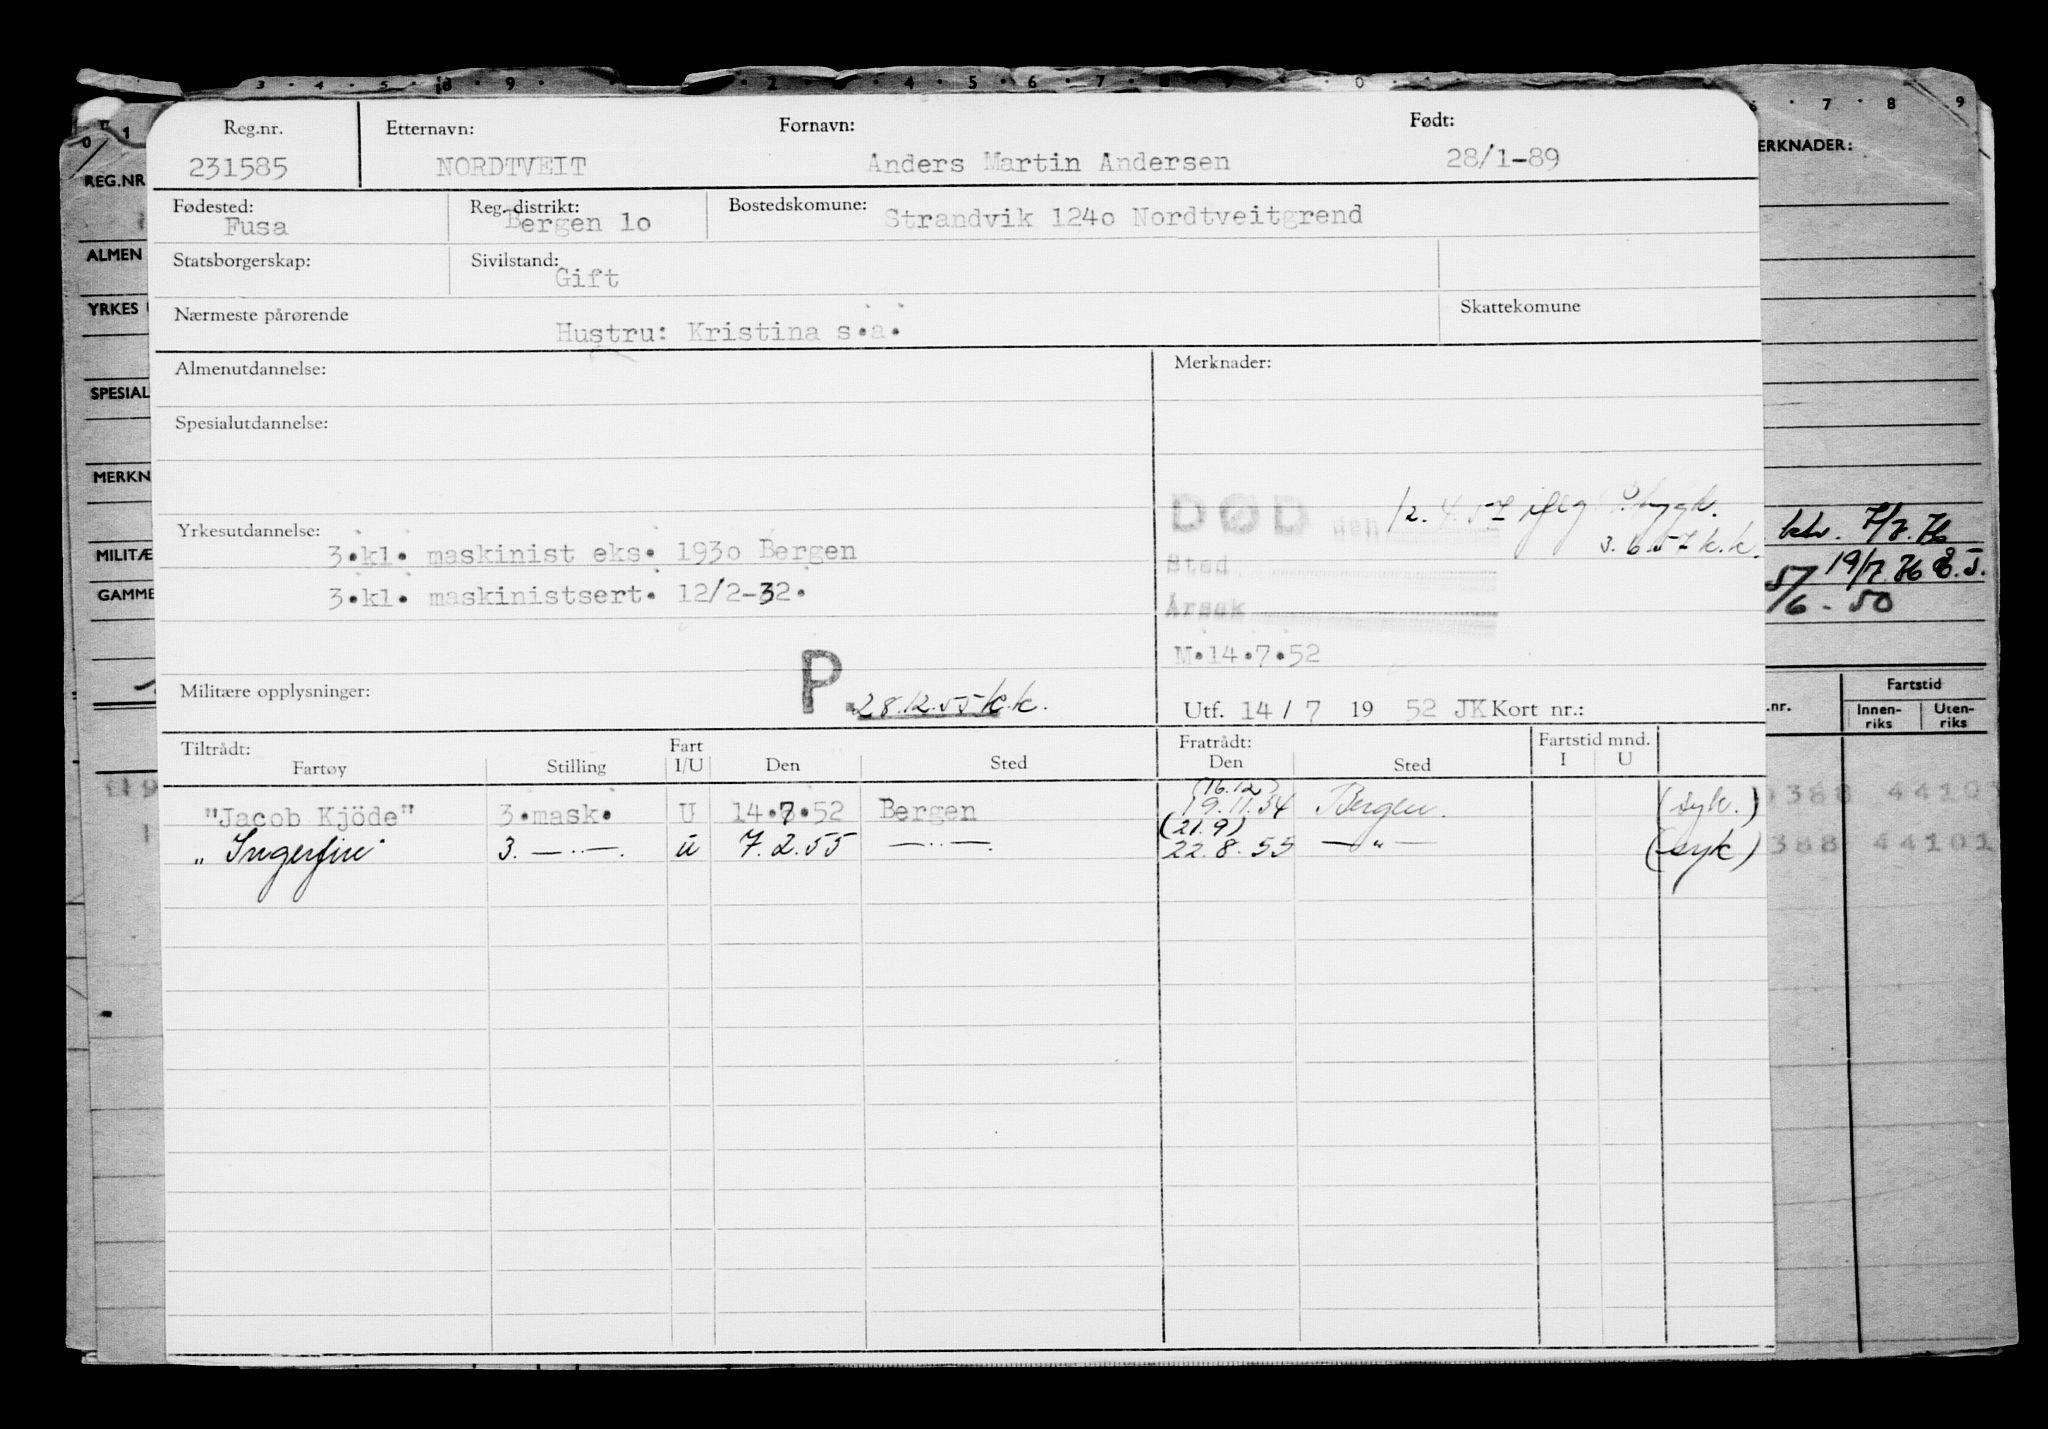 Reg.nr. Etternavn: Fornavn: Født:
231585 NORDTVEIT Anders Martin Andersen 28/1-89
Fødested: Reg. distrikt: Bostedskomune:
Fusa Bergen 1o Strandvik 124o Nordtveitgrend
Statsborgerskap: Sivilstand:
Gift
Nærmeste pårørende Skattekomune
Hustru: Kristina s.a.
Almenutdannelse: Merknader:
Spesialutdannelse:
DØD den 12.4.57 iflg
3.6.57 k.k.
Sted
Årsak
Yrkesutdannelse:
3.kl. maskinist eks. 193o Bergen
3.kl. maskinistsert. 12/2-32.
M.14.7.52
Militære opplysninger: P. 28.12.55 k.k.
Utf. 14/7 1952 JK Kort nr.:
Tiltrådt: Fart Fratrådt: Fartstid mnd.
Fartøy Stilling I/U Den Sted Den Sted I U
(16.12)
"Jacob Kjöde" 3.mask. U 14.7.52 Bergen 19.11.54 Bergen. (syk.)
(21.9)
"Ingerfire" 3. —..—. U 7.2.55 —..—. 22.8.55 — " — (syk)
REG.NR
ALMEN
YRKES
SPESIAL
MERKN
MILITÆ
GAMME
ERKNADER:
7/7.76
57 19/7.76 E.J.
5/6 - 50
.nr. Fartstid
Innen-riks Uten-riks
388 44101
388 44101